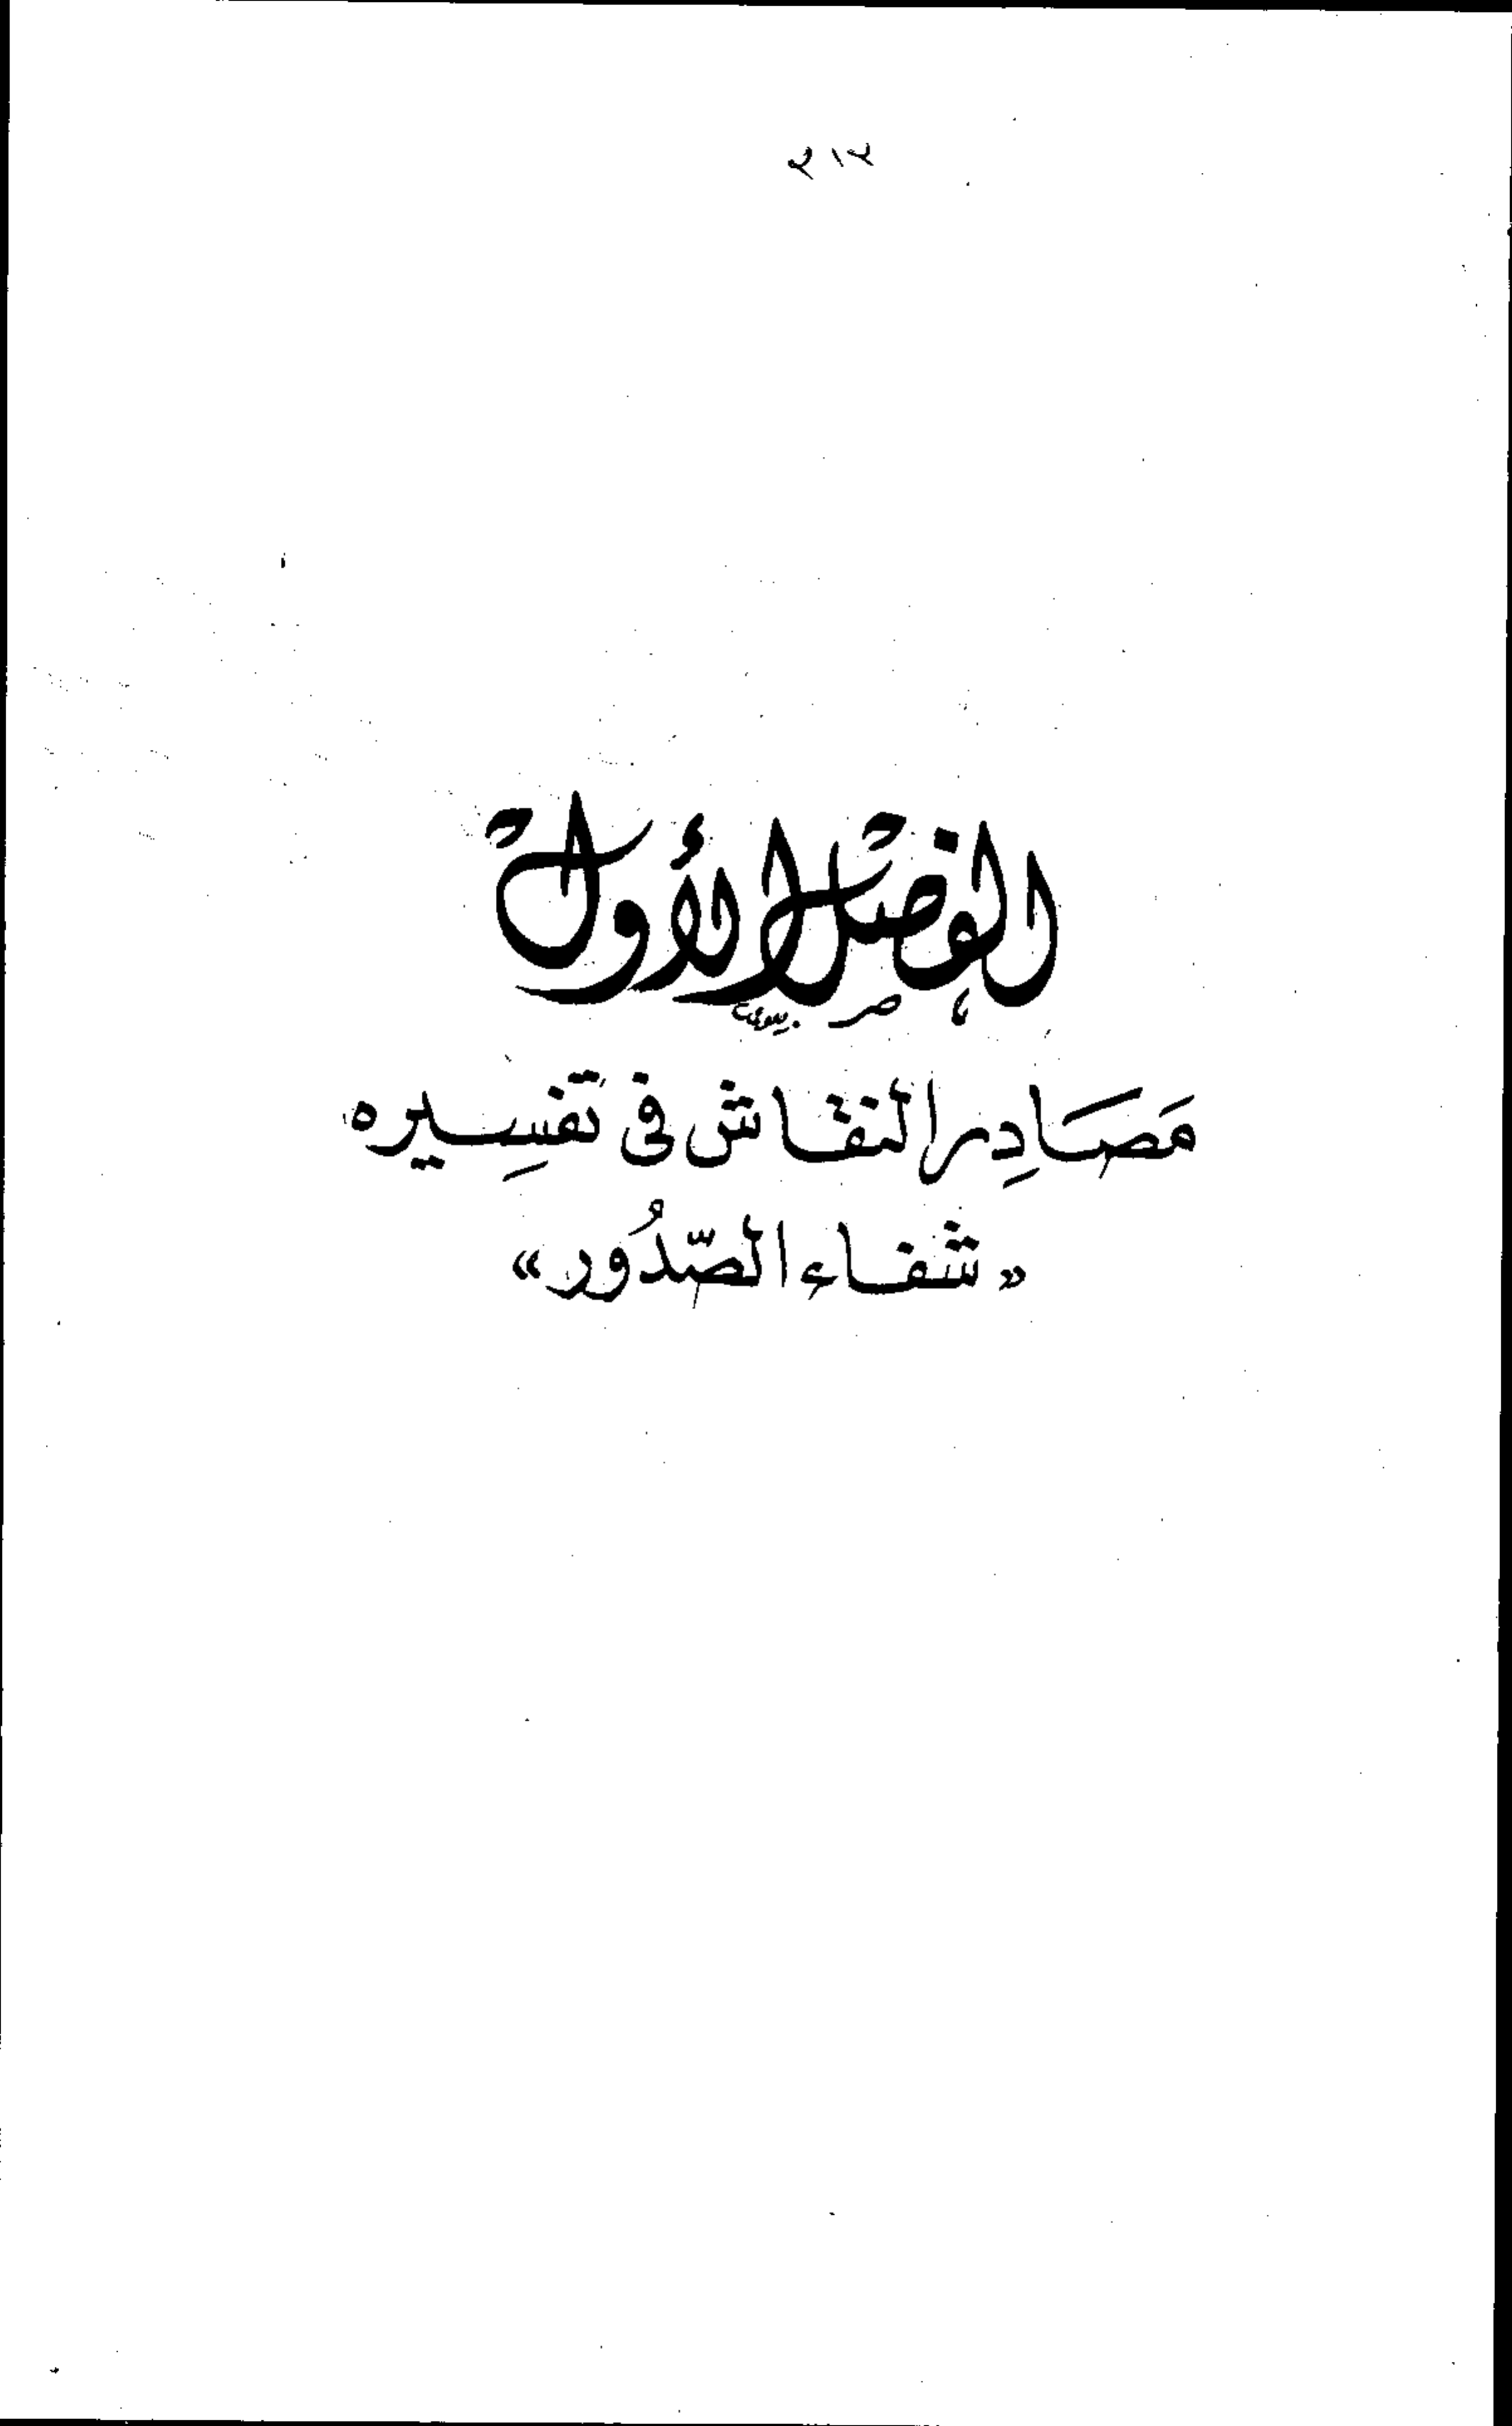 ٢١٢
الفصل الأول
مَصَادِر النقاش فى تفسِيره
«شفاء الصّدُور»